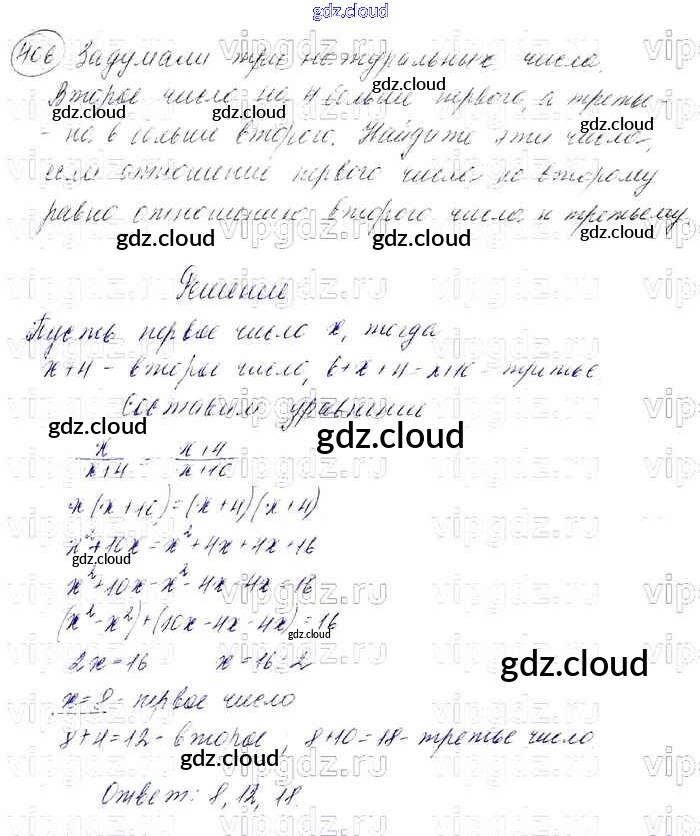 gdz.cloud
406 Задумали три натуральных числа.
Второе число на 4 больше первого, а третье -
- на 6 больше второго. Найдите эти числа,
если отношение первого числа ко второму
равно отношению второго числа к третьему
gdz.cloud
Решение
Пусть первое число x, тогда
x+4 - второе число, 6+x+4=x+10 - третье
Составим уравнение
x/x+4 = x+4/x+10
gdz.cloud
x(x+10)=(x+4)(x+4)
x²+10x=x²+4x+4x+16
x²+10x-x²-4x-4x=16
(x²-x²)+(10x-4x-4x)=16
2x=16 x=16:2
gdz.cloud
x=8 - первое число
8+4=12 - второе; 8+10=18 - третье число
Ответ: 8, 12, 18.